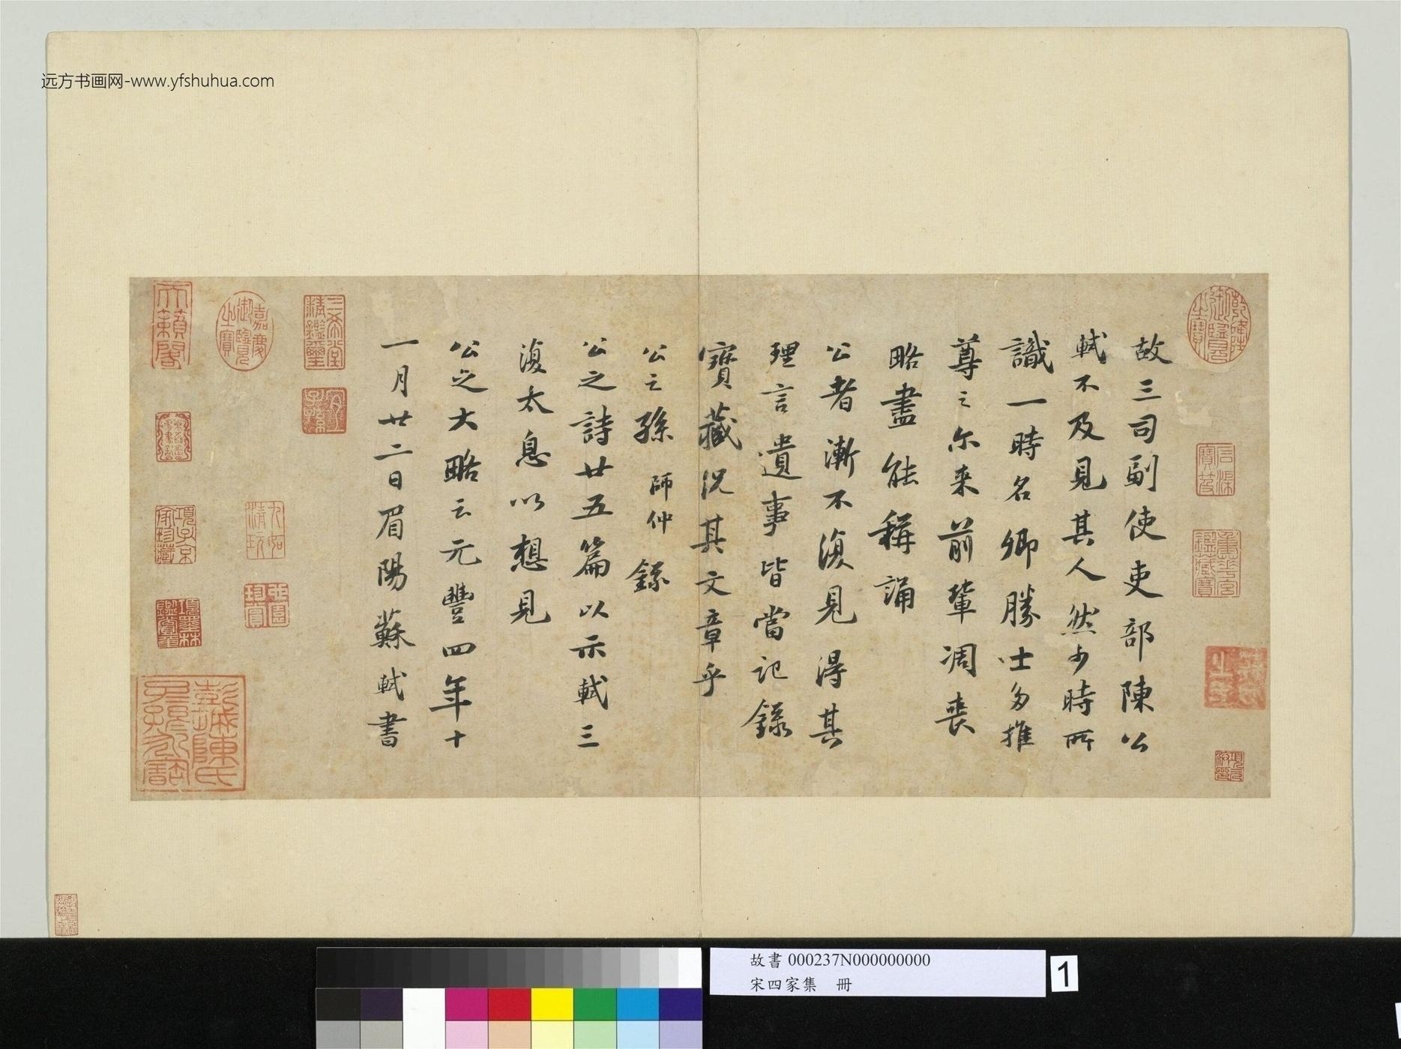 远方书画网-www.yfshuhua.com
故三司副使吏部陳公
軾不及見其人然少時所
識一時名卿勝士多推
尊之尔来前輩凋喪
略盡能稱誦
公者漸不復見得其
理言遺事皆當記錄
寶藏況其文章乎
公之孫師仲錄
公之詩廿五篇以示軾三
復太息以想見
公之大略云元豐四年十
一月廿二日眉陽蘇軾書
乾隆御覽之寶
嘉慶御覽之寶
三希堂精鑑璽
宜子孫
天籟閣
項子京家珍藏
項墨林鑑賞章
故書 000237N000000000
宋四家集 冊
1